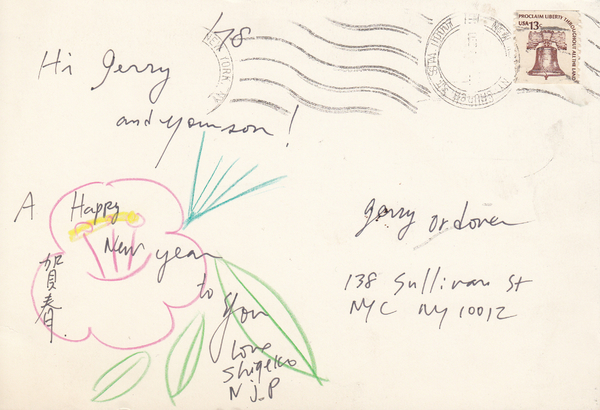 '78
Hi Jerry
and your son!
A Happy
New year
to
you
Love
Shigeko
N J. P
賀春.
Jerry Ordover
138 Sullivan St
NYC NY 10012
PROCLAIM LIBERTY THROUGHOUT ALL THE LAND
USA 13c
NEW YORK, NY